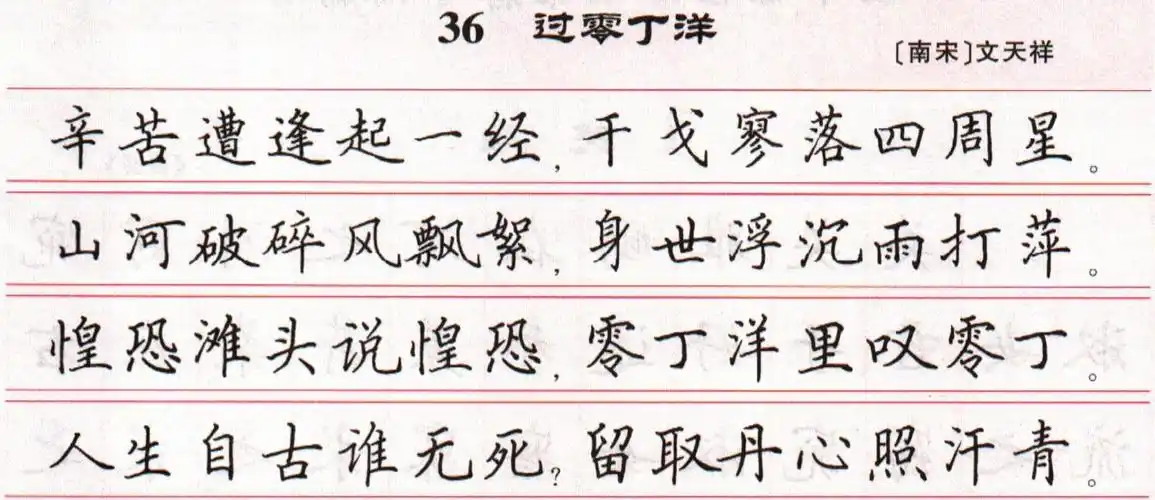 36 过零丁洋
〔南宋〕文天祥
辛苦遭逢起一经,干戈寥落四周星。
山河破碎风飘絮,身世浮沉雨打萍。
惶恐滩头说惶恐,零丁洋里叹零丁。
人生自古谁无死?留取丹心照汗青。